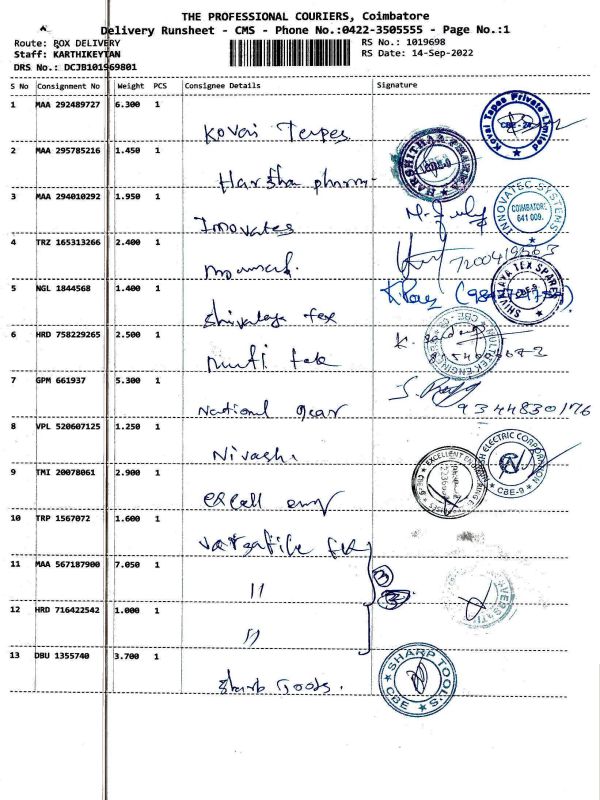 THE PROFESSIONAL COURIERS, Coimbatore
Delivery Runsheet - CMS - Phone No.:0422-3505555 - Page No.:1
Route: BOX DELIVERY
Staff: KARTHIKEYTAN
DRS No.: DCJB101969801
RS No.: 1019698
RS Date: 14-Sep-2022
S No Consignment No Weight PCS Consignee Details Signature
1 MAA 292489727 6.300 1
Kovai Tapes
Kovai Tapes Private Limited
CBE - 24
2 MAA 295785216 1.450 1
Harsha pharm-
HARSHITHAA PHARMA
3 MAA 294010292 1.950 1
Inovates
INNOVATEC SYSTEMS
COIMBATORE
641 009.
4 TRZ 165313266 2.400 1
5 NGL 1844568 1.400 1
Shivalaya tex
SHIVALAYA TEX SPARES
CBE-9
6 HRD 758229265 2.500 1
multi tek
MULTI TEK ENGINEERS
7 GPM 661937 5.300 1
National gear
9344830176
8 VPL 520607125 1.250 1
ELECTRIC CORPORATION
CBE-9
9 TMI 20078061 2.900 1
excell eng
EXCELLENT ENGINEERING
10 TRP 1567072 1.600 1
11 MAA 567187900 7.050 1
"
3
12 HRD 716422542 1.000 1
"
13 DBU 1355740 3.700 1
Sharp Tools.
SHARP TOOLS
CBE